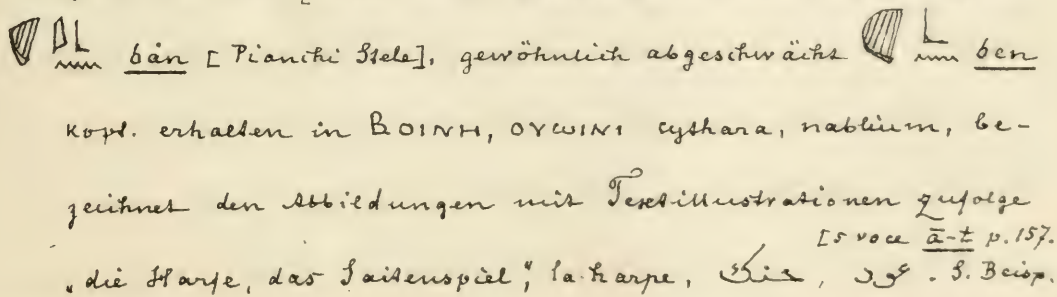 bán [Pianchi Stele], gewöhnlich abgeschwächt ben
kopt. erhalten in ⲂⲞⲒⲚⲎ, ⲞⲨⲰⲒⲚⲒ cythara, nablium, be-
zeichnet den Abbildungen mit Textillustrationen zufolge
[s voce ā-t p. 157.
„die Harfe, das Saitenspiel“, la harpe, جنك , عود . S. Beisp.